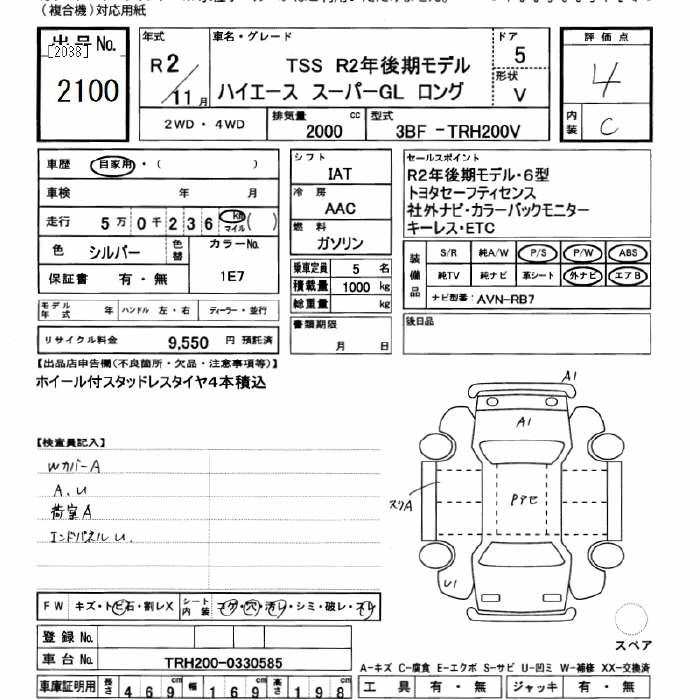 (複合機)対応用紙
出品No.
[2038]
2100
年式
R2/11月
車名・グレード
TSS R2年後期モデル
ハイエース スーパーGL ロング
ドア
5
形状
V
評価点
4
内装
C
2WD・4WD
排気量
2000
cc
型式
3BF-TRH200V
車歴 自家用・( )
車検 年 月
走行 5万0千236 km マイル ( )
色 シルバー 色替
カラーNo.
1E7
保証書 有・無
モデル年式 年 ハンドル 左・右 ディーラー・並行
リサイクル料金 9,550 円 預託済
シフト
IAT
冷房
AAC
燃料
ガソリン
乗車定員 5 名
積載量 1000 kg
総重量 kg
書類期限
月 日
セールスポイント
R2年後期モデル・6型
トヨタセーフティセンス
社外ナビ・カラーバックモニター
キーレス・ETC
装備品
S/R 純A/W P/S P/W ABS
純TV 純ナビ 革シート 外ナビ エアB
ナビ型番: AVN-RB7
後日品
【出品店申告欄(不良箇所・欠品・注意事項等)】
ホイール付スタッドレスタイヤ4本積込
【検査員記入】
Wカバ-A
A.U
荷室A
エンドパネルU.
A1
A1
スリA
U1
スペア
FW キズ・トビ石・割レX
シート内装 コゲ・穴・汚レ・シミ・破レ・スレ
登録No.
車台No. TRH200-0330585
A-キズ C-腐食 E-エクボ S-サビ U-凹ミ W-補修 XX-交換済
車庫証明用 長さ 469 cm 幅 169 cm 高さ 198 cm
工具 有・無 ジャッキ 有・無